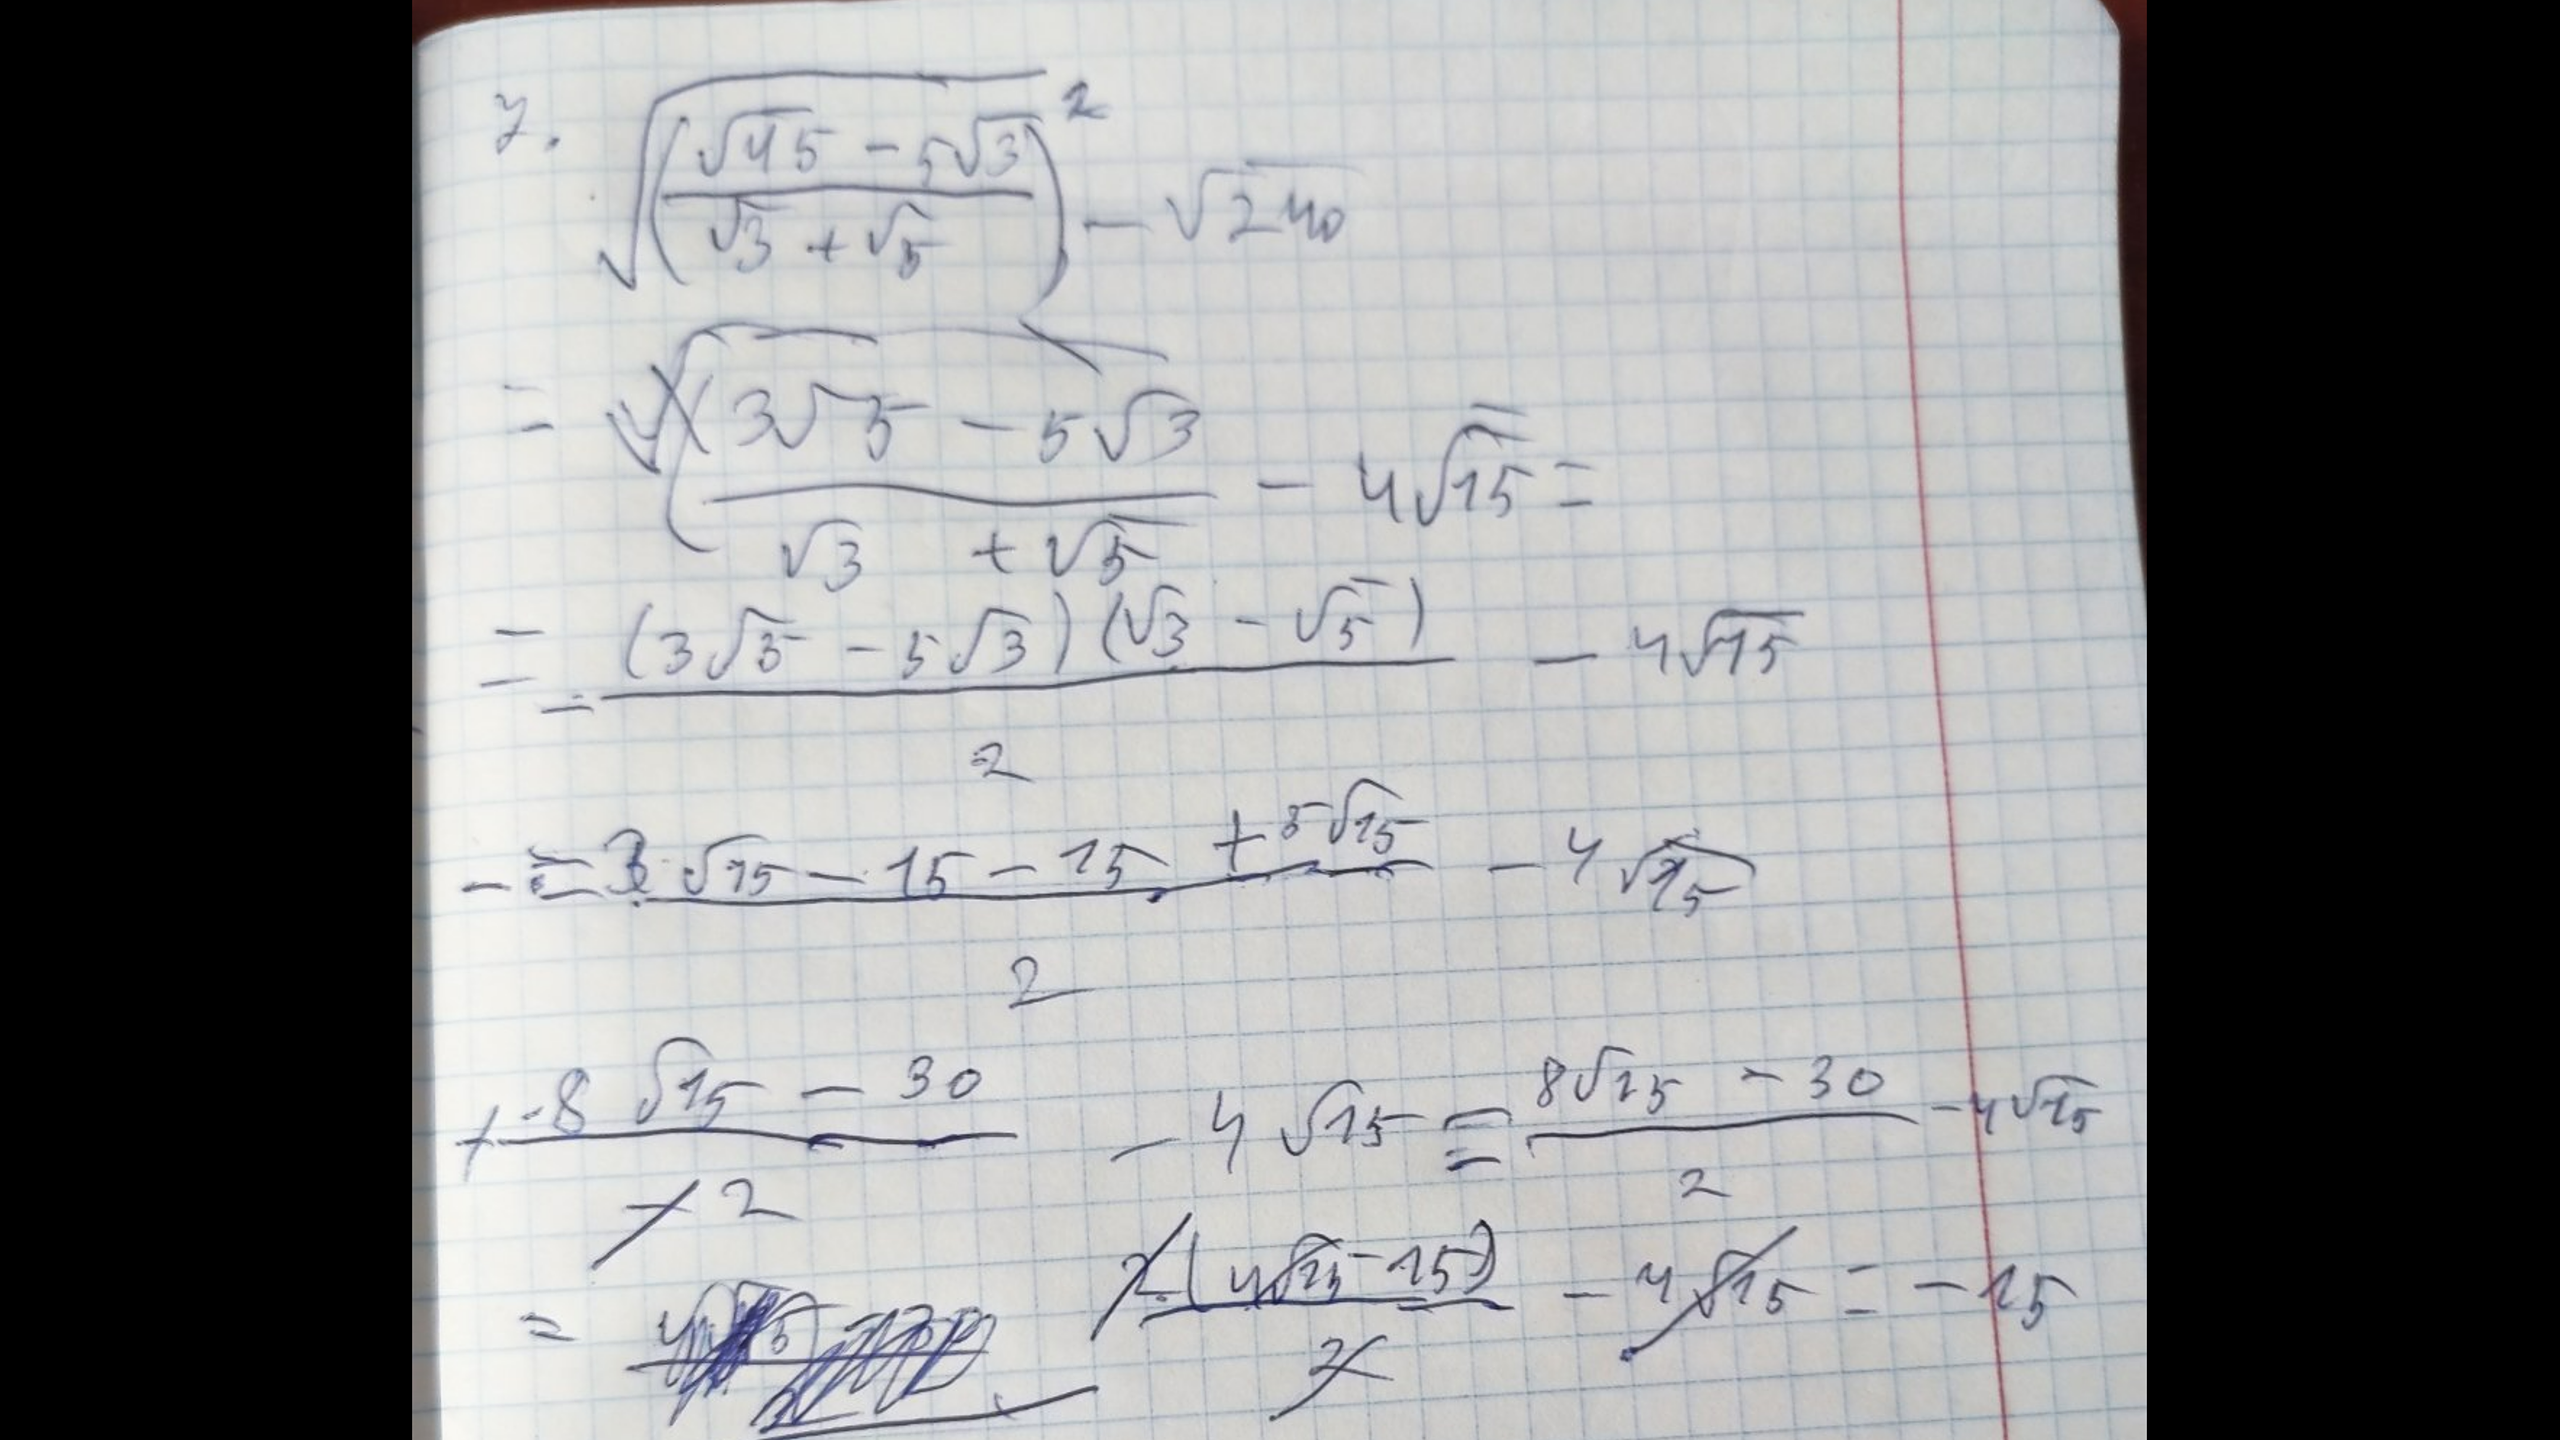 7. √((√45 - 5√3)/(√3 + √5))² - √240
= (3√5 - 5√3)/(√3 + √5) - 4√15 =
= -(3√5 - 5√3)(√3 - √5)/2 - 4√15
- = 3√15 - 15 - 15 + 5√15/2 - 4√15
+ -8√15 - 30/2 - 4√15 = (8√15 - 30)/2 - 4√15
= 2(4√15 - 15)/2 - 4√15 = -15